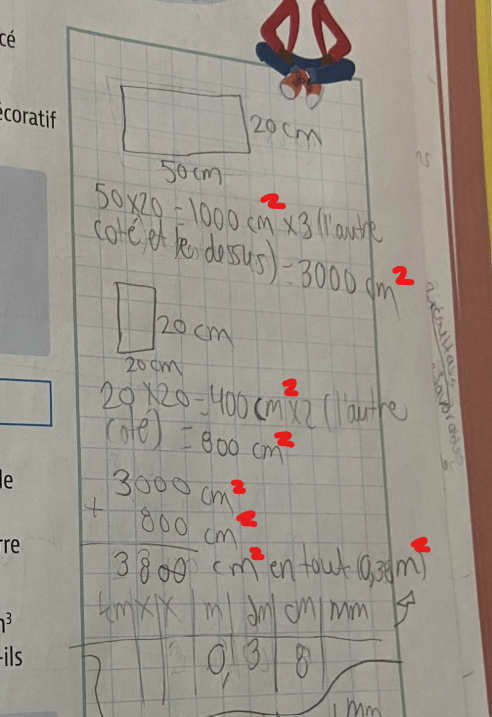 cé
écoratif
20 cm
50 cm
50x20 = 1000 cm² x3 (l'autre
coté, et le dessus) = 3000 cm²
20 cm
20 cm
20 x 20 = 400 cm² x2 (l'autre
coté) = 800 cm²
3000 cm²
+ 800 cm²
3800 cm² en tout (0,38 m)²
le
rre
km|x|x|m|dm|cm|mm
m³
0,3 8
-ils
mm